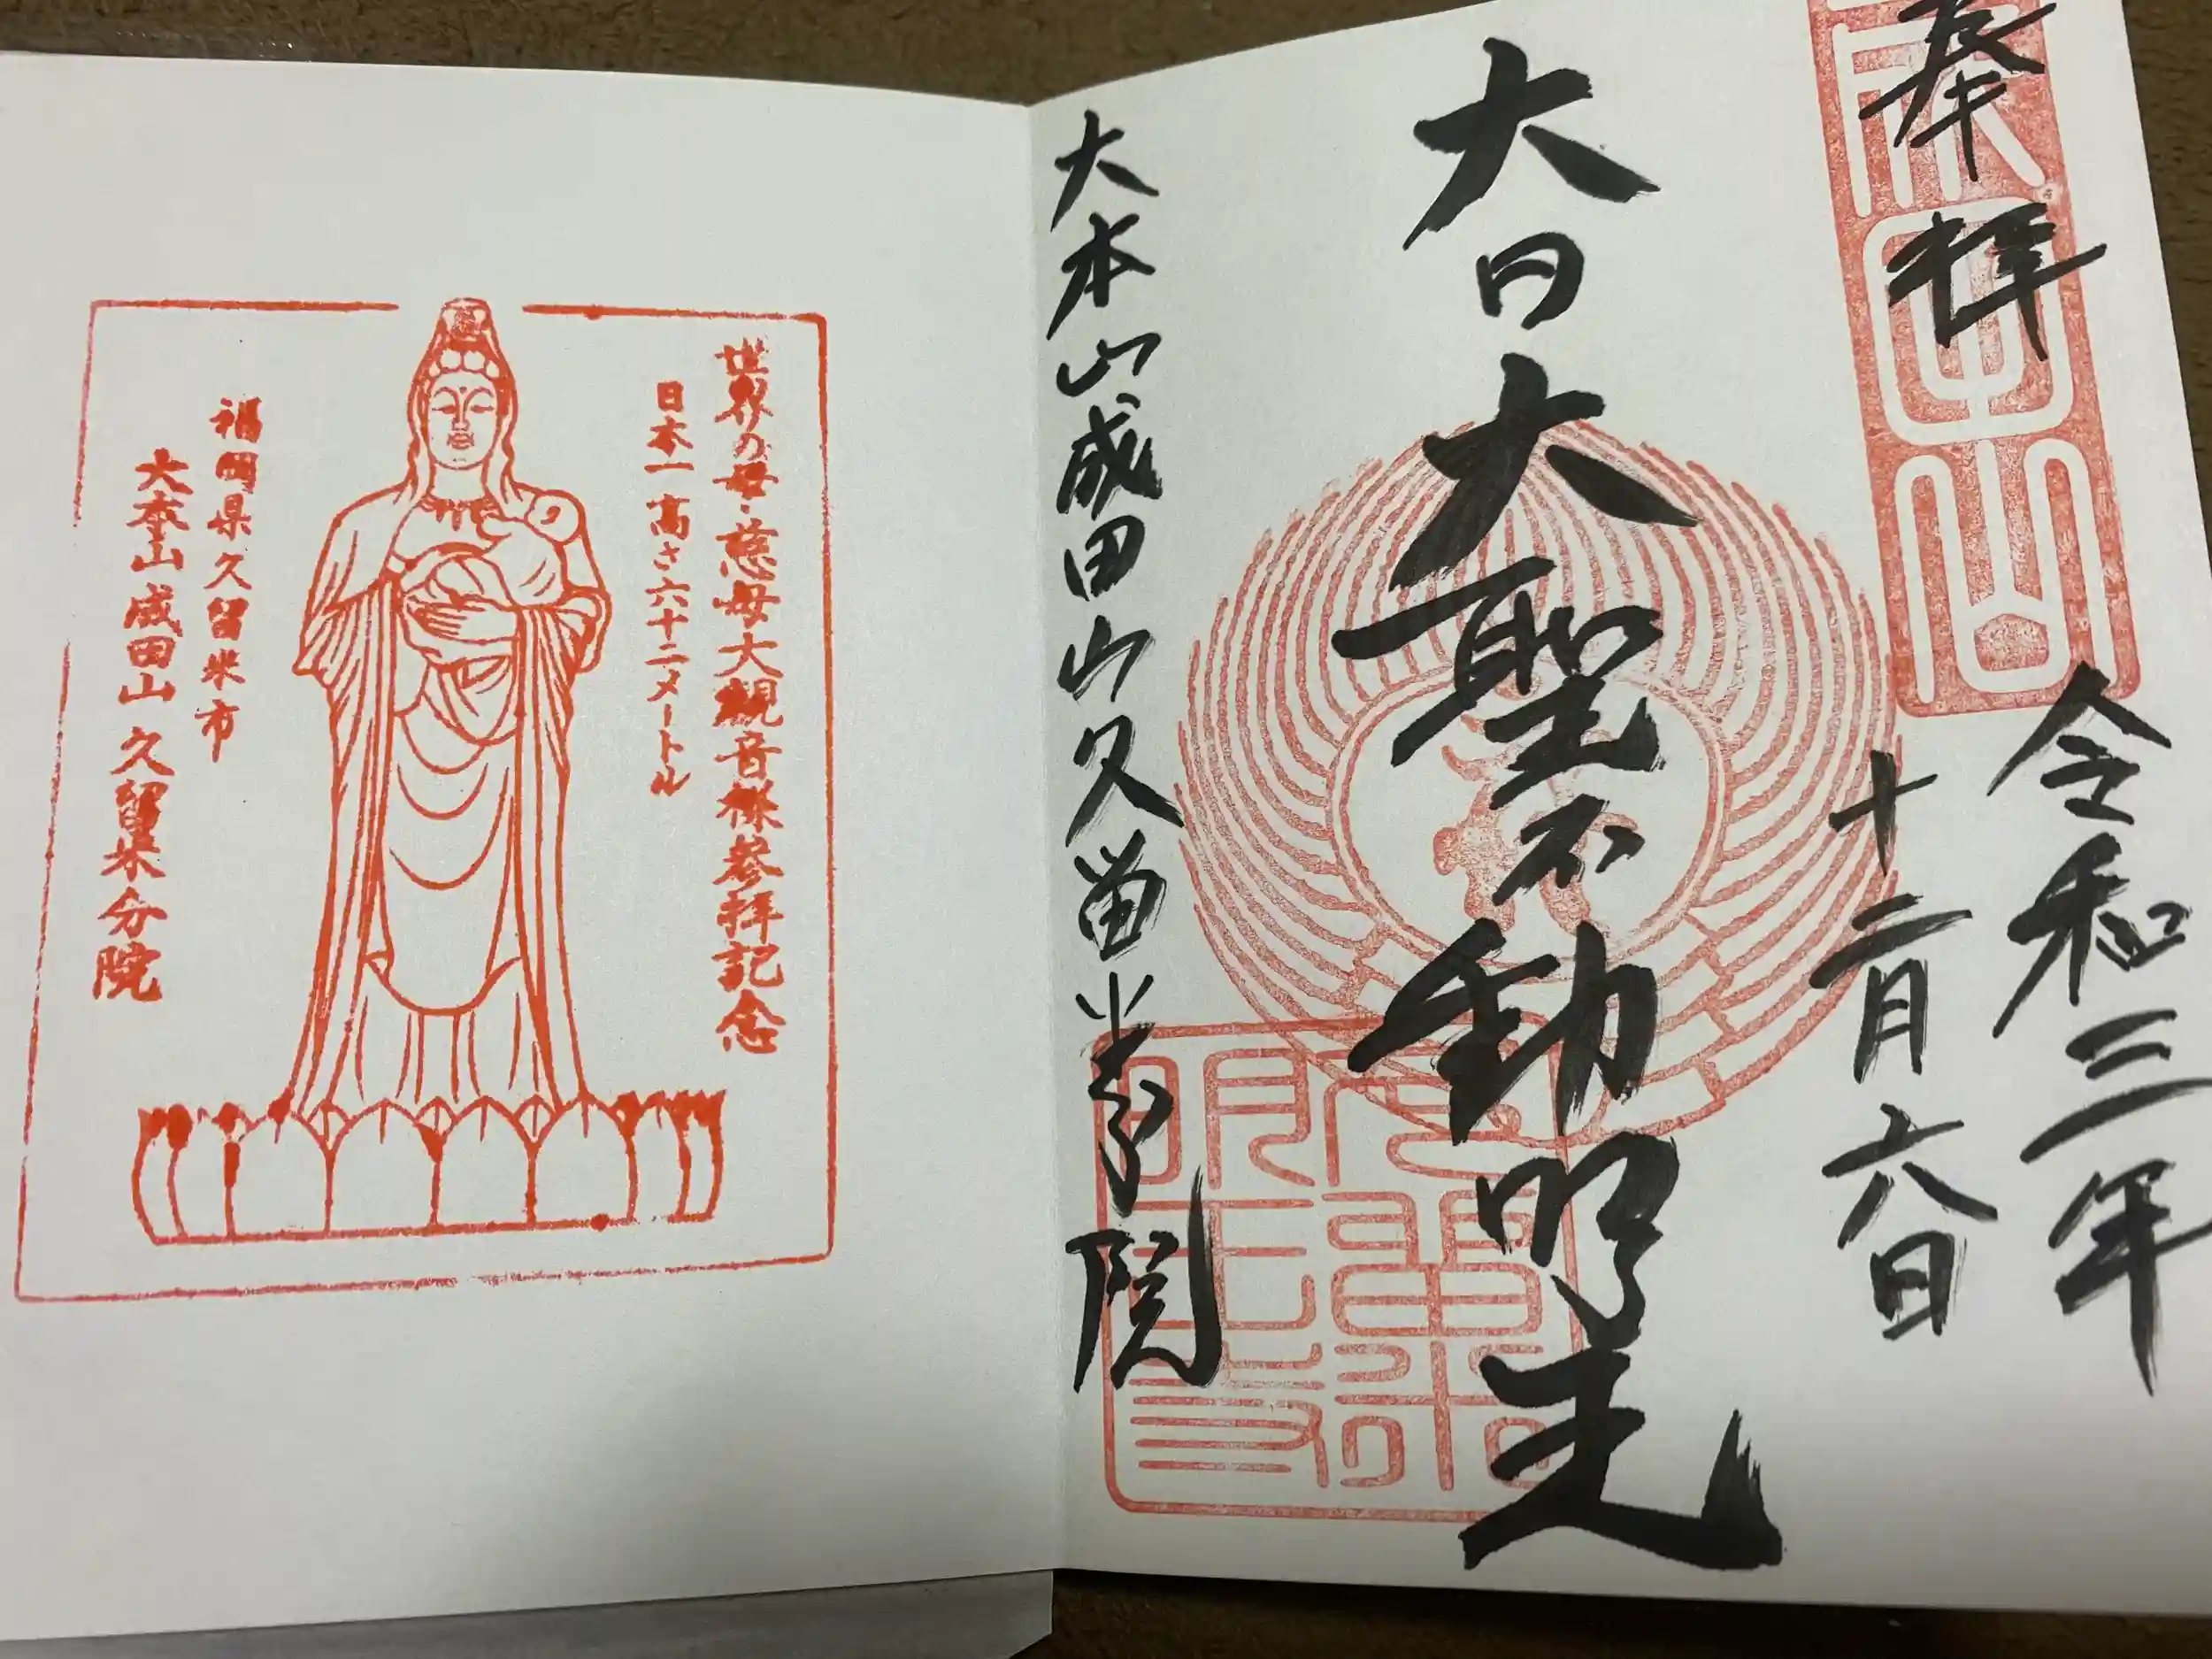 奉拝
令和三年
十二月六日
成田山
大日大聖不動明王
大本山成田山久留米分院
世界の母・慈母大観音様参拝記念
日本一高さ六十二メートル
福岡県久留米市
大本山成田山久留米分院